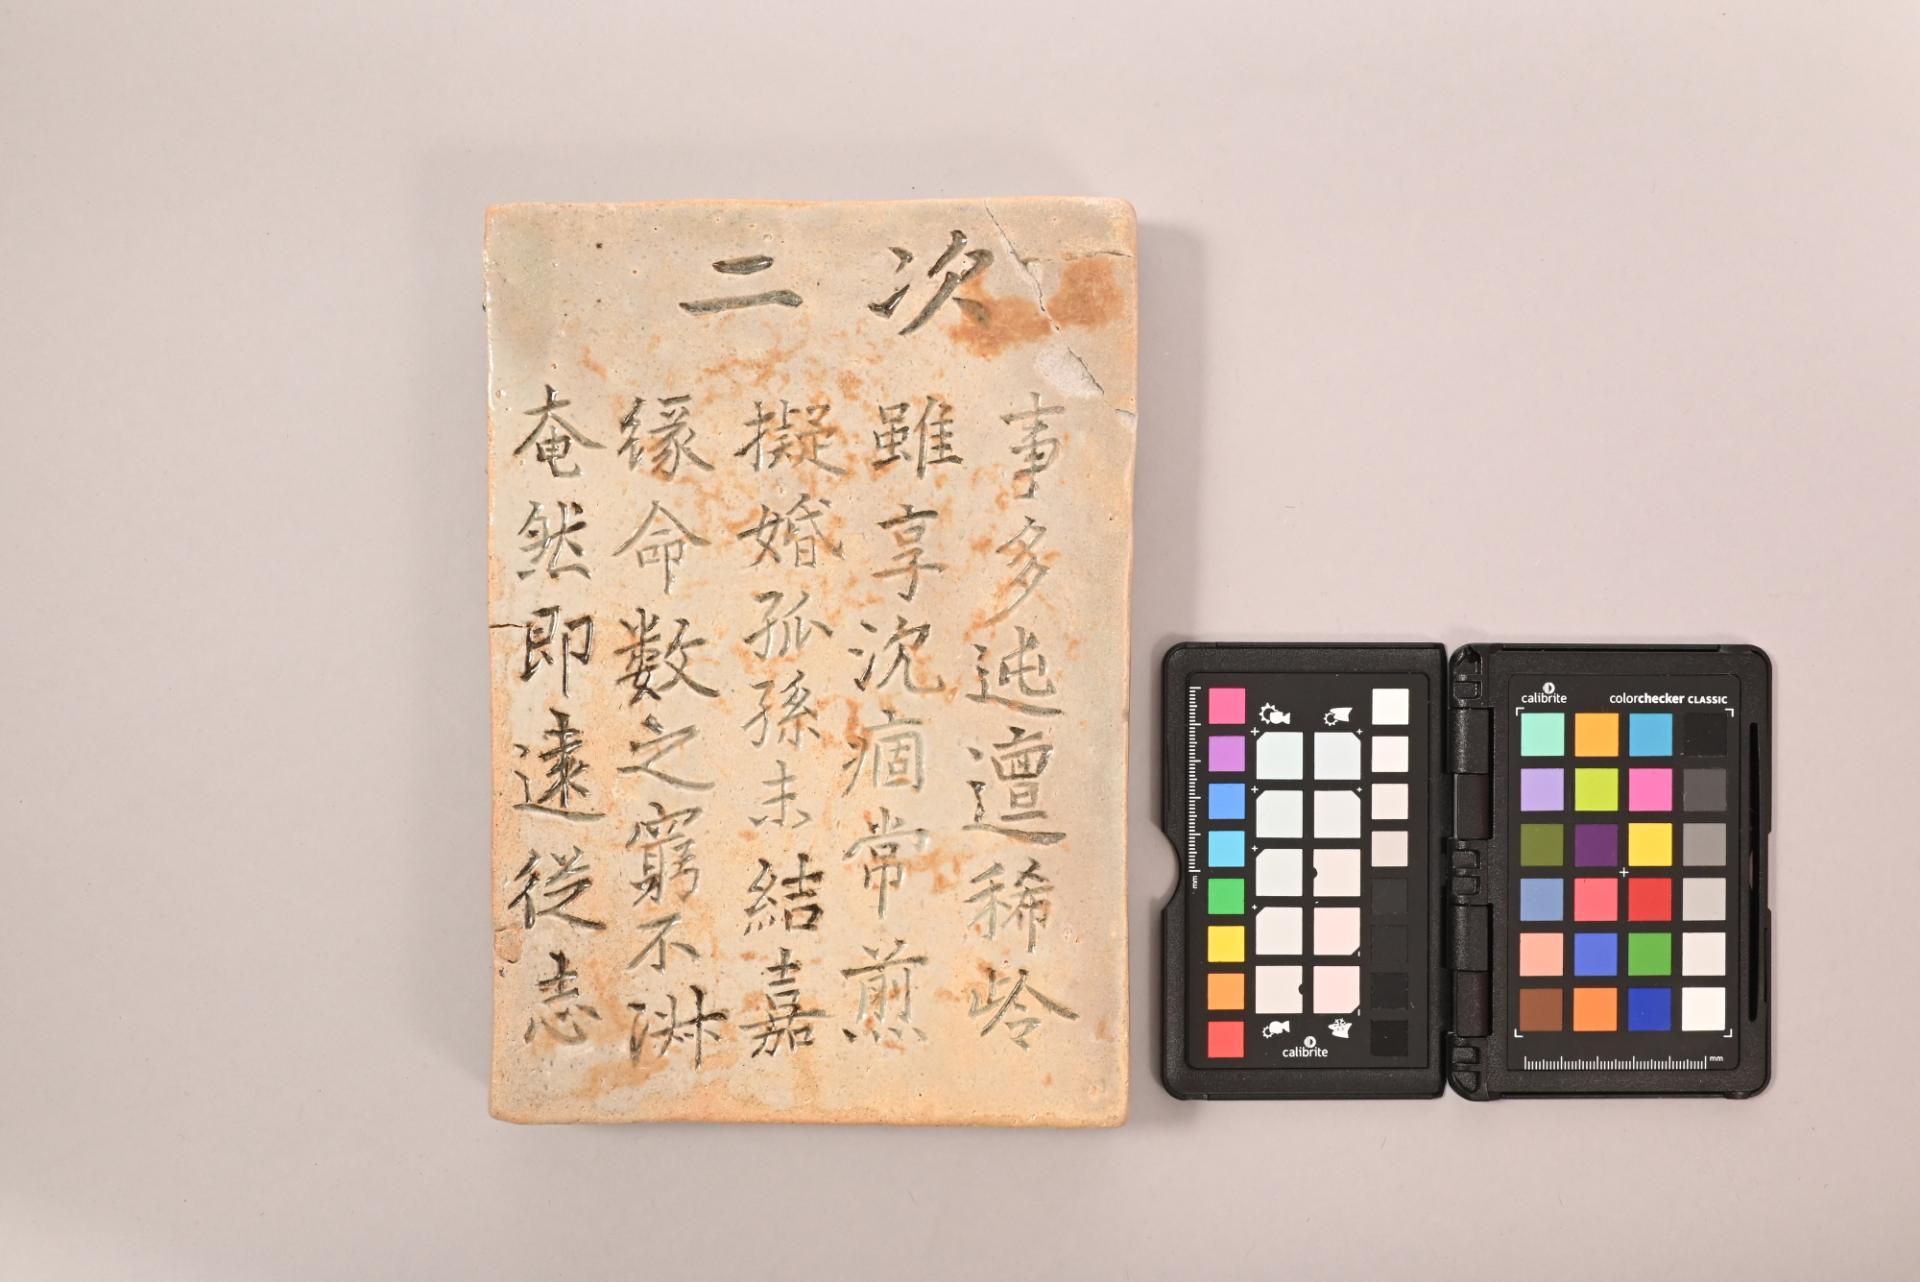 次二
事多迍邅稀齡
雖享沈痼常煎
擬婚孤孫未結嘉
緣命數之窮不淑
奄然即遠從志
calibrite
calibrite
colorchecker CLASSIC
mm
mm